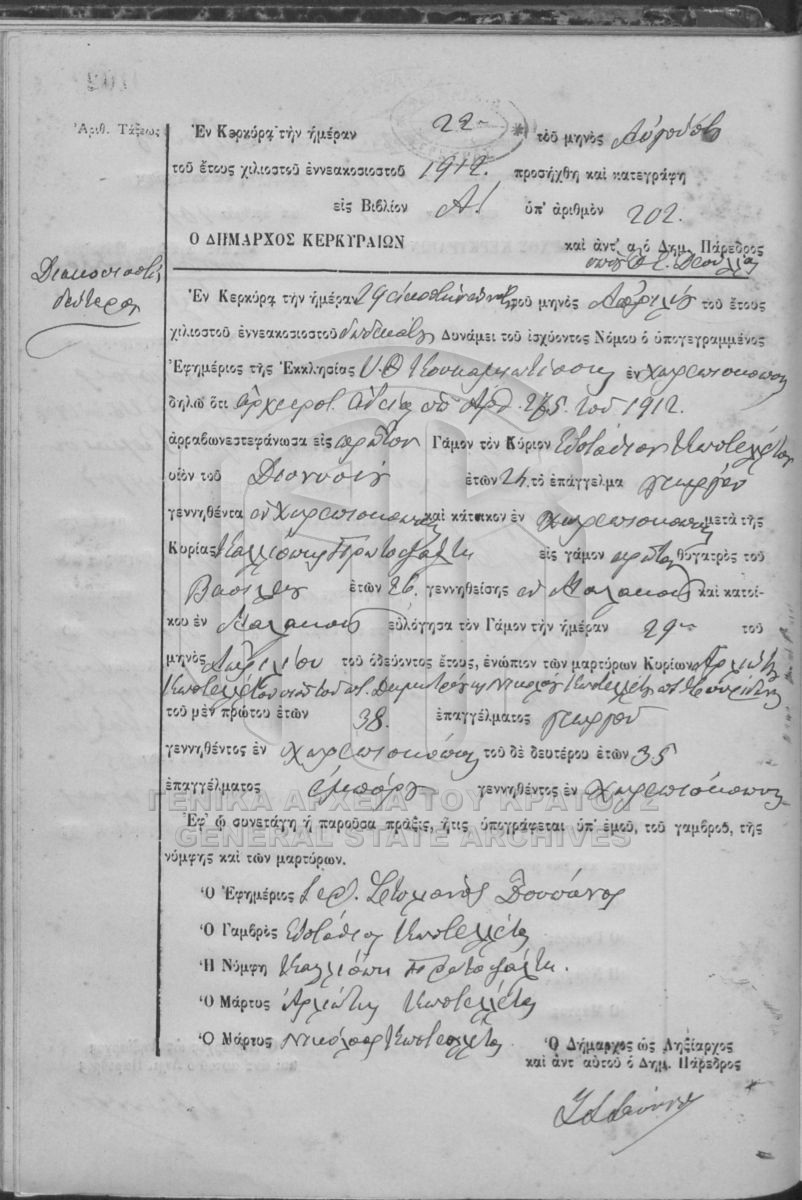 Ἀριθ. Τάξεως
Ἐν Κερκύρᾳ τὴν ἡμέραν 22 τοῦ μηνὸς Αὐγούστου
τοῦ ἔτους χιλιοστοῦ ἐννεακοσιοστοῦ 1912. προσήχθη καὶ κατεγράφη
εἰς Βιβλίον Α! ὑπ' ἀριθμὸν 202.
Ο ΔΗΜΑΡΧΟΣ ΚΕΡΚΥΡΑΙΩΝ καὶ ἀντ' α. ὁ Δημ. Πάρεδρος
Διακοσιοστὴ
δευτέρα
Ἐν Κερκύρᾳ τὴν ἡμέραν 29 εἰκοστὴν ἐννάτην τοῦ μηνὸς Ἀπριλίου τοῦ ἔτους
χιλιοστοῦ ἐννεακοσιοστοῦ δωδεκάτου Δυνάμει τοῦ ἰσχύοντος Νόμου ὁ ὑπογεγραμμένος
Ἐφημέριος τῆς Ἐκκλησίας Υ.Θ ἐν Χωρεπισκόπων
δηλῶ ὅτι ἀρχιερατ. ἀδείᾳ ὑπ' Ἀρθ. 265 τοῦ 1912.
ἀρραβωνεστεφάνωσα εἰς πρῶτον Γάμον τὸν Κύριον Εὐστάθιον Κοστελλέτον
υἱὸν τοῦ Διονυσίου ἐτῶν 24 τὸ ἐπάγγελμα γεωργὸν
γεννηθέντα ἐν Χωρεπισκόπους καὶ κάτοικον ἐν Χωρεπισκόπους μετὰ τῆς
Κυρίας Καλλιόπης Πρωτοψάλτη εἰς γάμον πρῶτον θυγατρὸς τοῦ
Βασιλείου ἐτῶν 26. γεννηθείσης ἐν καὶ κατοί-
κου ἐν εὐλόγησα τὸν Γάμον τὴν ἡμέραν 29 τοῦ
μηνὸς Ἀπριλίου τοῦ ὁδεύοντος ἔτους, ἐνώπιον τῶν μαρτύρων Κυρίων Ἀρλιώτη
Κοστελλέτου υἱοῦ τοῦ Δημητρίου Νικολάου Κοστελλέτου Σπυρίδωνος
τοῦ μὲν πρώτου ἐτῶν 38. ἐπαγγέλματος γεωργοῦ
γεννηθέντος ἐν Χωρεπισκόπους τοῦ δὲ δευτέρου ἐτῶν 35
ἐπαγγέλματος ἐμπόρου γεννηθέντος ἐν Χωρεπισκόπους
ΓΕΝΙΚΑ ΑΡΧΕΙΑ ΤΟΥ ΚΡΑΤΟΥΣ
Ἐφ' ᾧ συνετάγη ἡ παροῦσα πρᾶξις, ἥτις ὑπογράφεται ὑπ' ἐμοῦ, τοῦ γαμβροῦ, τῆς
GENERAL STATE ARCHIVES
νύμφης καὶ τῶν μαρτύρων.
Ὁ Ἐφημέριος Ἱερ. Δουσάνος
Ὁ Γαμβρὸς Εὐστάθιος Κοστελλέτος
Ἡ Νύμφη Καλλιόπη Πρωτοψάλτη.
Ὁ Μάρτυς Ἀρλιώτης Κοστελλέτος
Ὁ Μάρτυς Νικόλαος Κοστελλέτος
Ὁ Δήμαρχος ὡς Ληξίαρχος
καὶ ἀντ αὐτοῦ ὁ Δημ. Πάρεδρος